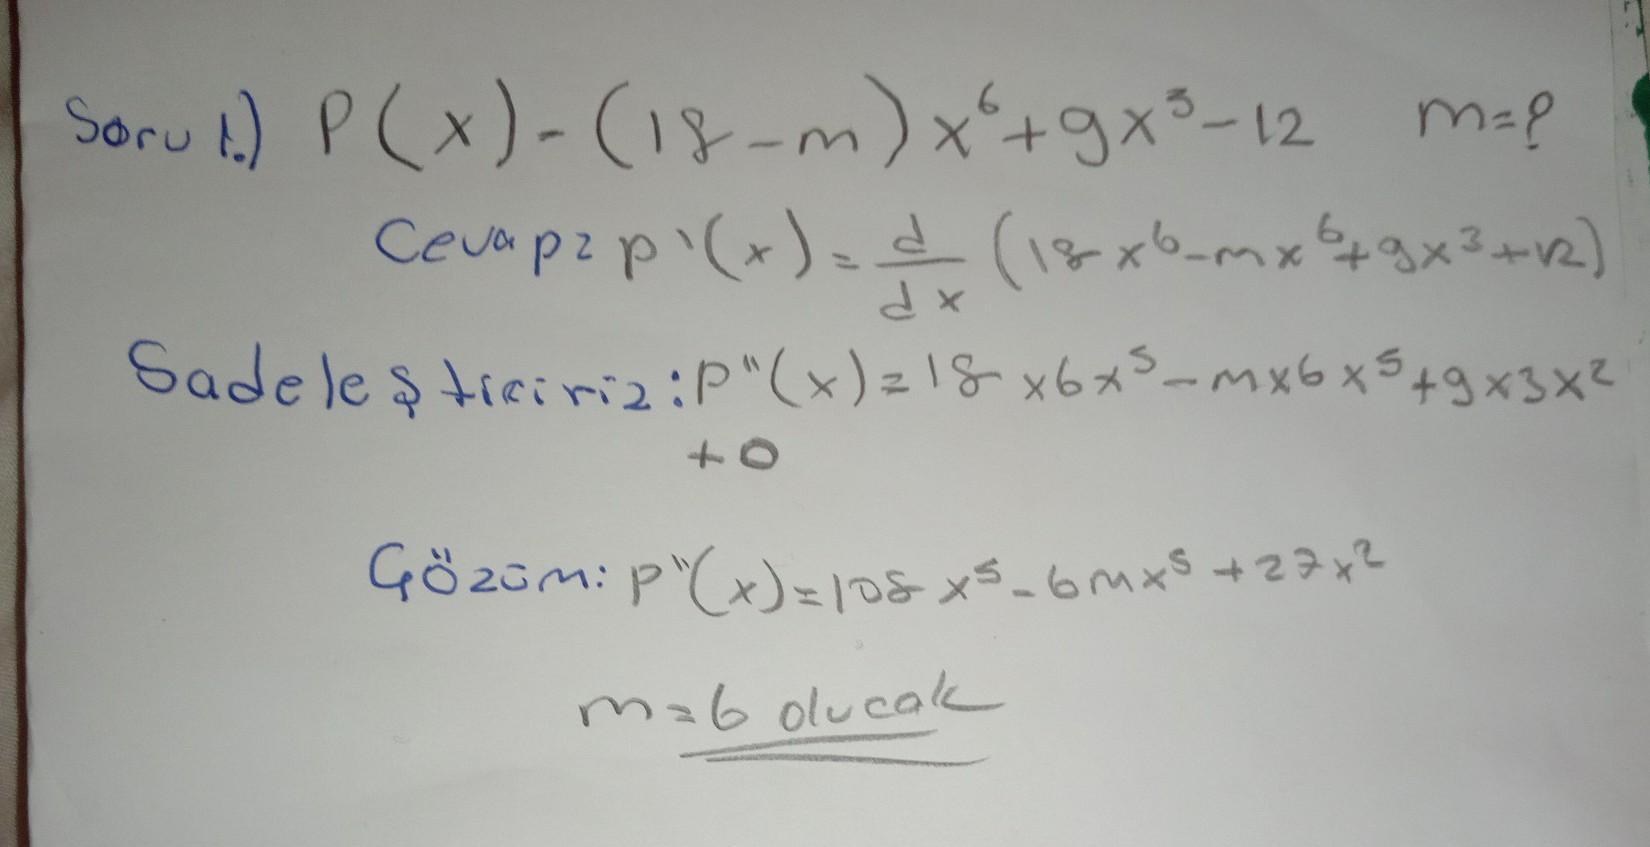 Soru 1.) P(x)-(18-m)x⁶+9x³-12 m=?
Cevap: p'(x)=d/dx (18x⁶-mx⁶+9x³+12)
Sadeleştiririz: p"(x)=18x6x⁵-mx6x⁵+9x3x²
+0
Çözüm: p"(x)=108x⁵-6mx⁵+27x²
m=6 olucak